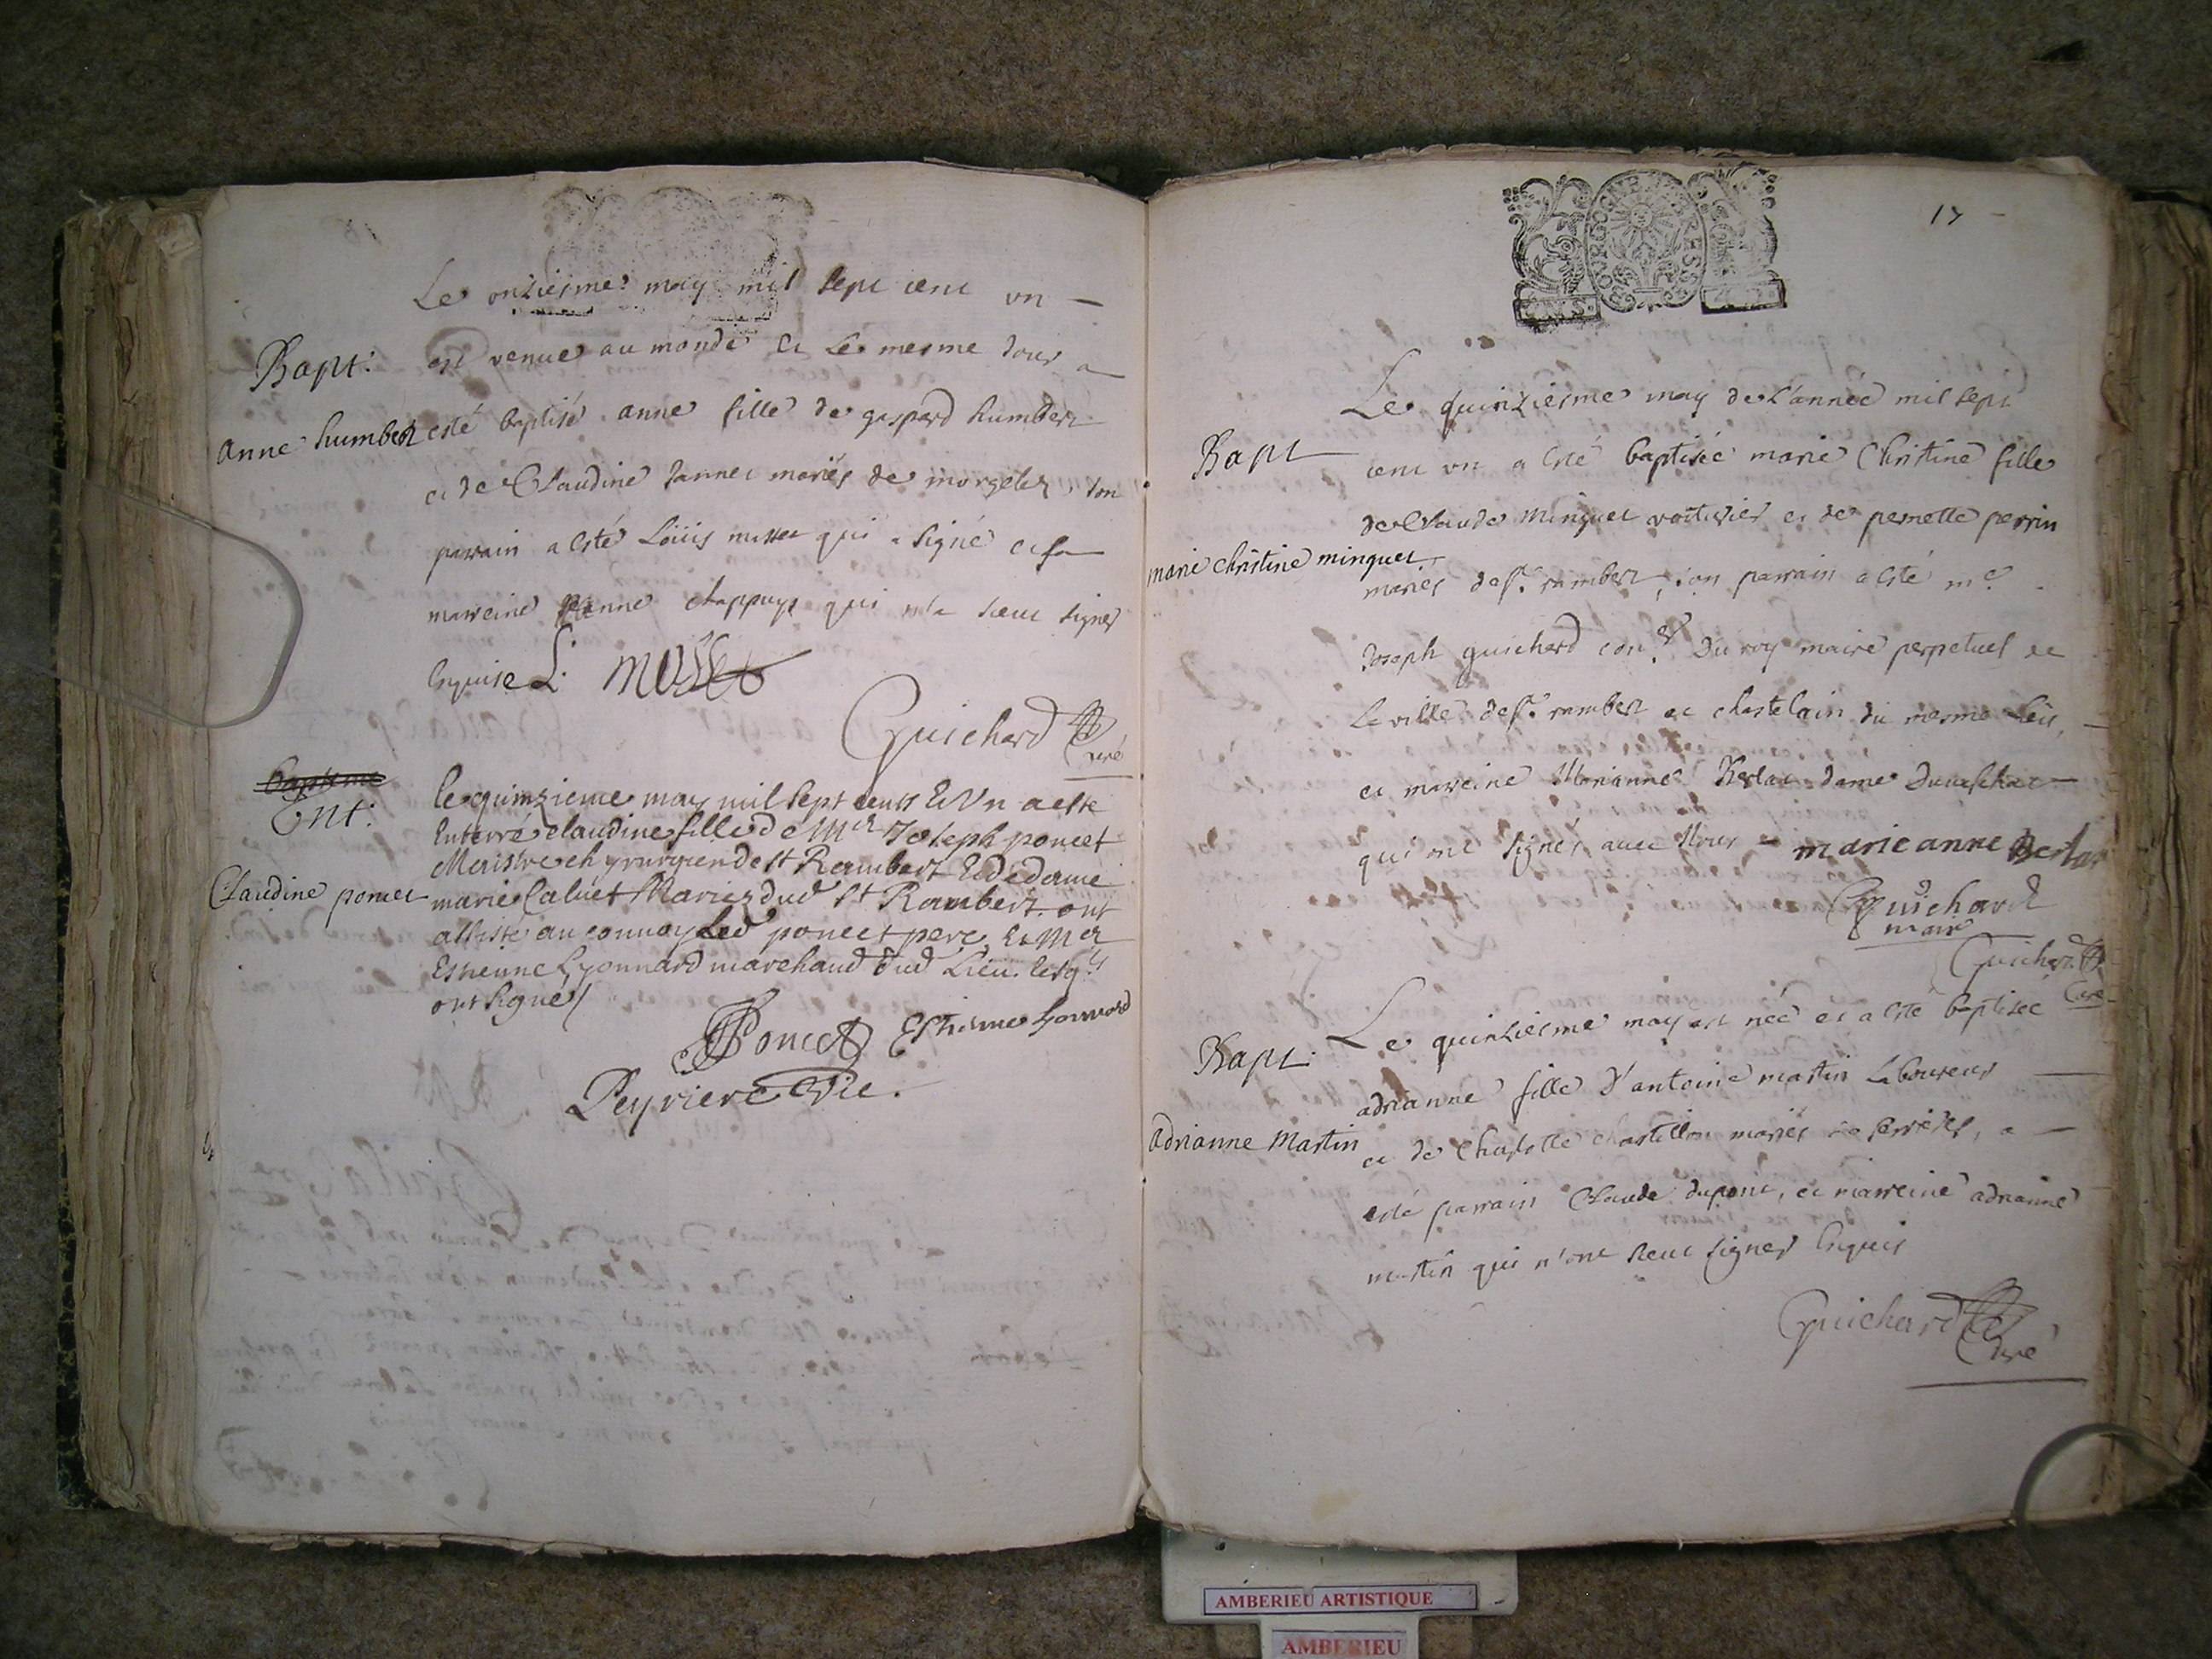 Le onziesme may mil sept cent un —
Bapt: est venue au monde et le mesme jour a
anne humbert esté baptisé anne fille de gaspard humbert
et de Claudine Jannet mariés de morgelet, son
parrain a esté Loüis musset qui a signé et sa
marreine Jeanne chappuys qui n'a sceu signer
Enquise L. Musset
Guichard
Curé
baptisme
Ent:
le quinzieme may mil sept cents Et Vn a este
Enterré claudine fille de Mer Joseph poncet
Maistre chyrurgien de st Rambert Et de dame
Claudine poncet
marie Caluet Mariez dud st Rambert. ont
assisté au conuoy Led poncet pere, Et Mer
Estienne Lyonnard marchand dud Lieu. lesqls
ont signé/
Poncet Estienne Lionnard
Peyriere Vic.
17
BOURGOGNE BRESSE
Le quinziesme may de l'année mil sept
Bapt cent un a esté baptisée marie Christine fille
de Claude Minguet voiturier et de pernette perrin
marie christine minguet
mariés de st. rambert, son parrain a esté me
Joseph guichard coner Du roy maire perpetuel de
La ville de st. rambert et chastelain du mesme lieu,
et marreine Marianne dame
qui ont signés auec Nous – marie anne
Guichard
maire
Guichard
Curé
Le quinziesme may est née et a esté baptisée
Bapt.
adrianne fille d'antoine martin Laboureur
adrianne Martin
et de Charlotte chastillon mariés de serrieres, a
esté parrain Claude dupont, et marreine adrianne
martin qui n'ont sceu signer Enquis
Guichard
Curé
AMBERIEU ARTISTIQUE
AMBERIEU